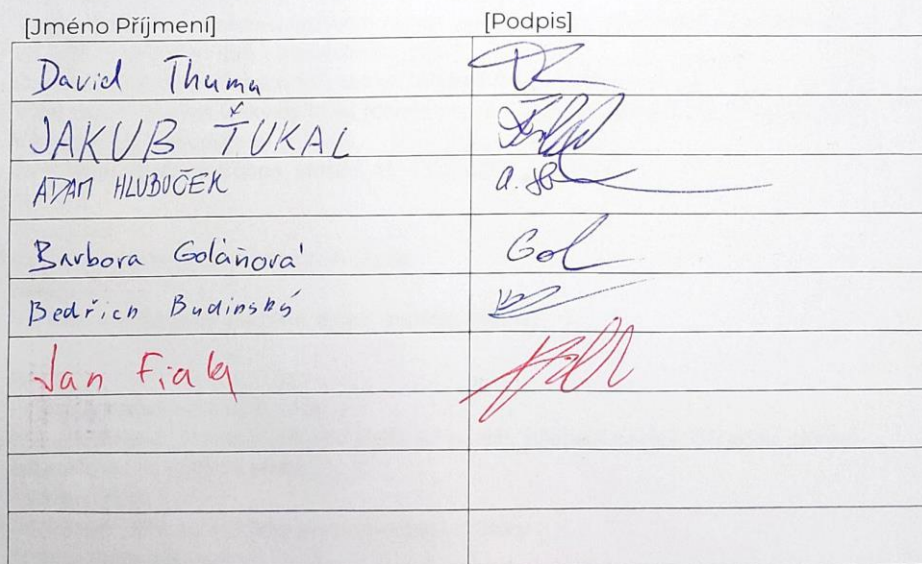 [Jméno Příjmení] [Podpis]
David Thuma
JAKUB ŤUKAL
ADAM HLUBUČEK a. H
Barbora Goláňová Gol
Bedřich Budinský
Jan Fiala